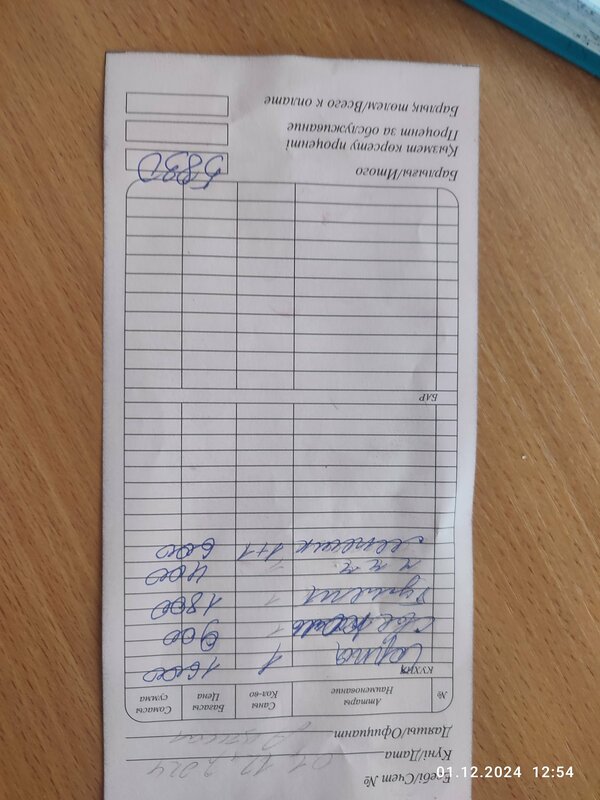 Есебі/Счет №
Күні/Дата 01.12.2024
Даяшы/Официант
№ Аттары Наименование Саны Кол-во Бағасы Цена Сомасы сумма
КУХНЯ
1 1600
1 900
1 1800
400
1+1 600
БАР
Барлығы/Итого 5830
Қызмет көрсету проценті
Процент за обслуживание
Барлық төлем/Всего к оплате
01.12.2024 12:54